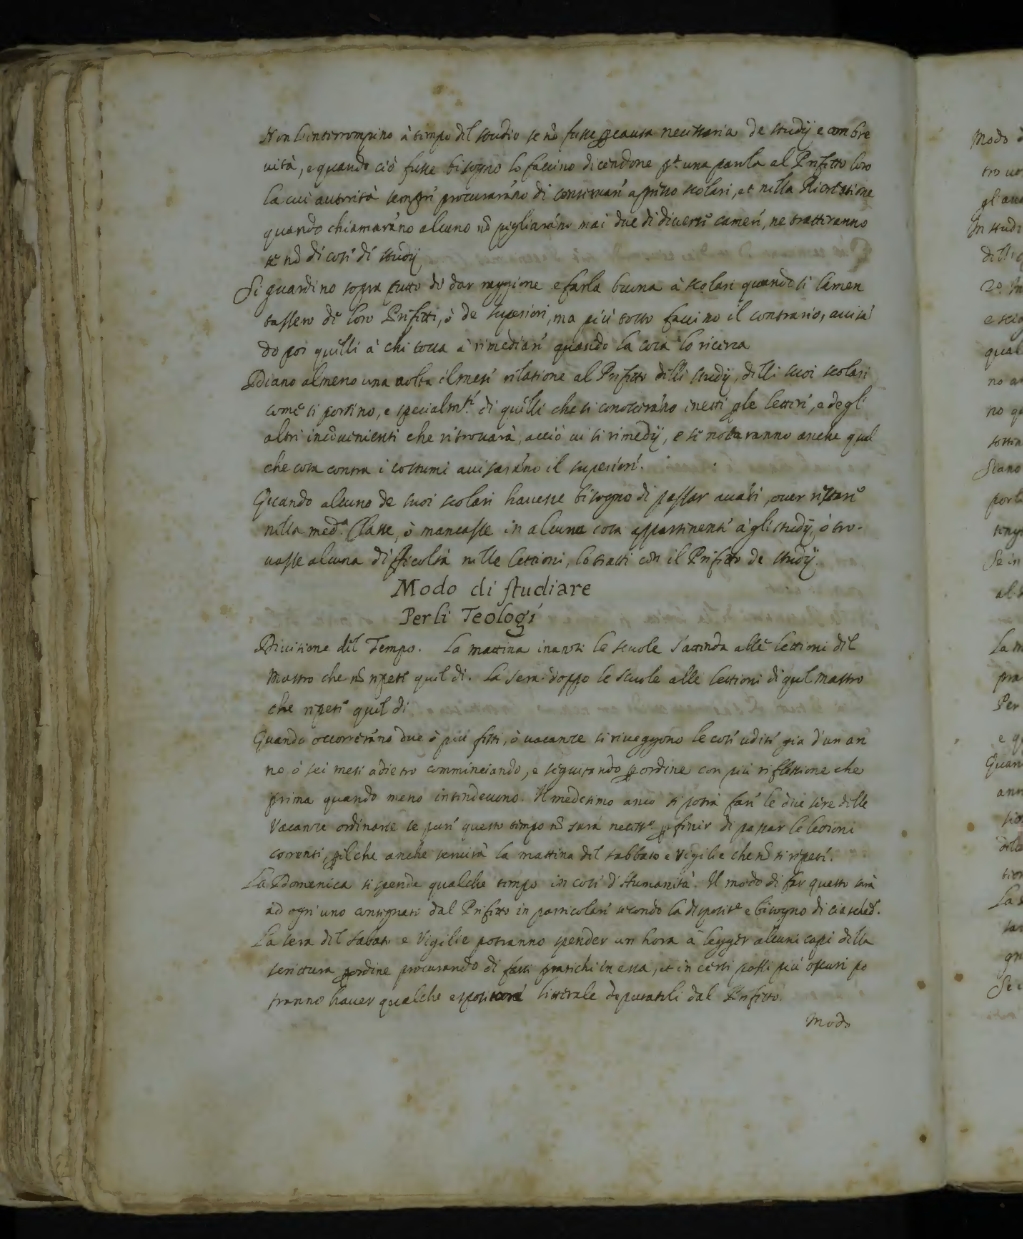 Non l'interrompino à tempo del studio se nō fusse p causa necessaria de studij e con bre
uità, e quando ciò fusse bisogno lo faccino di condone pª una parola al Prefetto loro
la cui autorità sempre procuraranno di conservare appresso scolari, et nella Ricreatione
quando chiamaranno alcuno nō pigliaranno mai due di diverse camere, ne trattaranno
se nō di cose di studij
Si guardino sopra tutto di dar raggione e farla buona à scolari quando si lamen
tassero de loro Prefetti, ò de superiori, ma più tosto faccino il contrario, avisā
do poi quelli à chi tocca à rimediare quando la cosa lo ricerca
Diano almeno una volta il mese relatione al Prefetto delli studij, delli suoi scolari
come si portino, e specialmte di quelli che si conosceranno inetti p le lettere, e degl
altri inconvenienti che ritrovarà, acciò vi si rimedij, e se notaranno anche qual
che cosa contra i costumi avisaranno il superiore.
Quando alcuno de suoi scolari havesse bisogno di passar avāti, over restare
nella medª Classe, ò mancasse in alcuna cosa appartinente à gli studij, ò tro-
vasse alcuna difficoltà nelle lettioni, lo tratti con il Prefetto de studij.
Modo di studiare
Per li Teologi
Divisione del Tempo. La mattina inanzi le scuole s'attenda alle lettioni del
Mastro che nō ripete quel di. La sera doppo le scuole alle lettioni di quel mastro
che ripete quel di
Quando occorreranno due ò più feste, ò vacanze si riveggono le cose udite già d'un an
no ò sei mesi adietro comminciando, e seguitando p ordine con più riflessione che
prima quando meno intendevano. Il medesimo anco si potrà fare le due sere delle
Vacanze ordinarie se pure questo tempo nō sarà necessº p finir di passar le lezioni
correnti, p il che anche servirà la mattina del sabbato e Vigilie che nō si ripete.
La Domenica si spende qualche tempo in cose d'Humanità. Il modo di far questo sarà
ad ogn'uno consignato dal Prefetto in particolare secondo la dispositne e bisogno di ciasched.
La sera del sabato e Vigilie potranno spender un hora à legger alcuni capi della
scrittura p ordine procurando di farsi pratichi in essa, et in certi passi più oscuri po
tranno haver qualche espositore litterale deputatoli dal Prefetto.
Modo